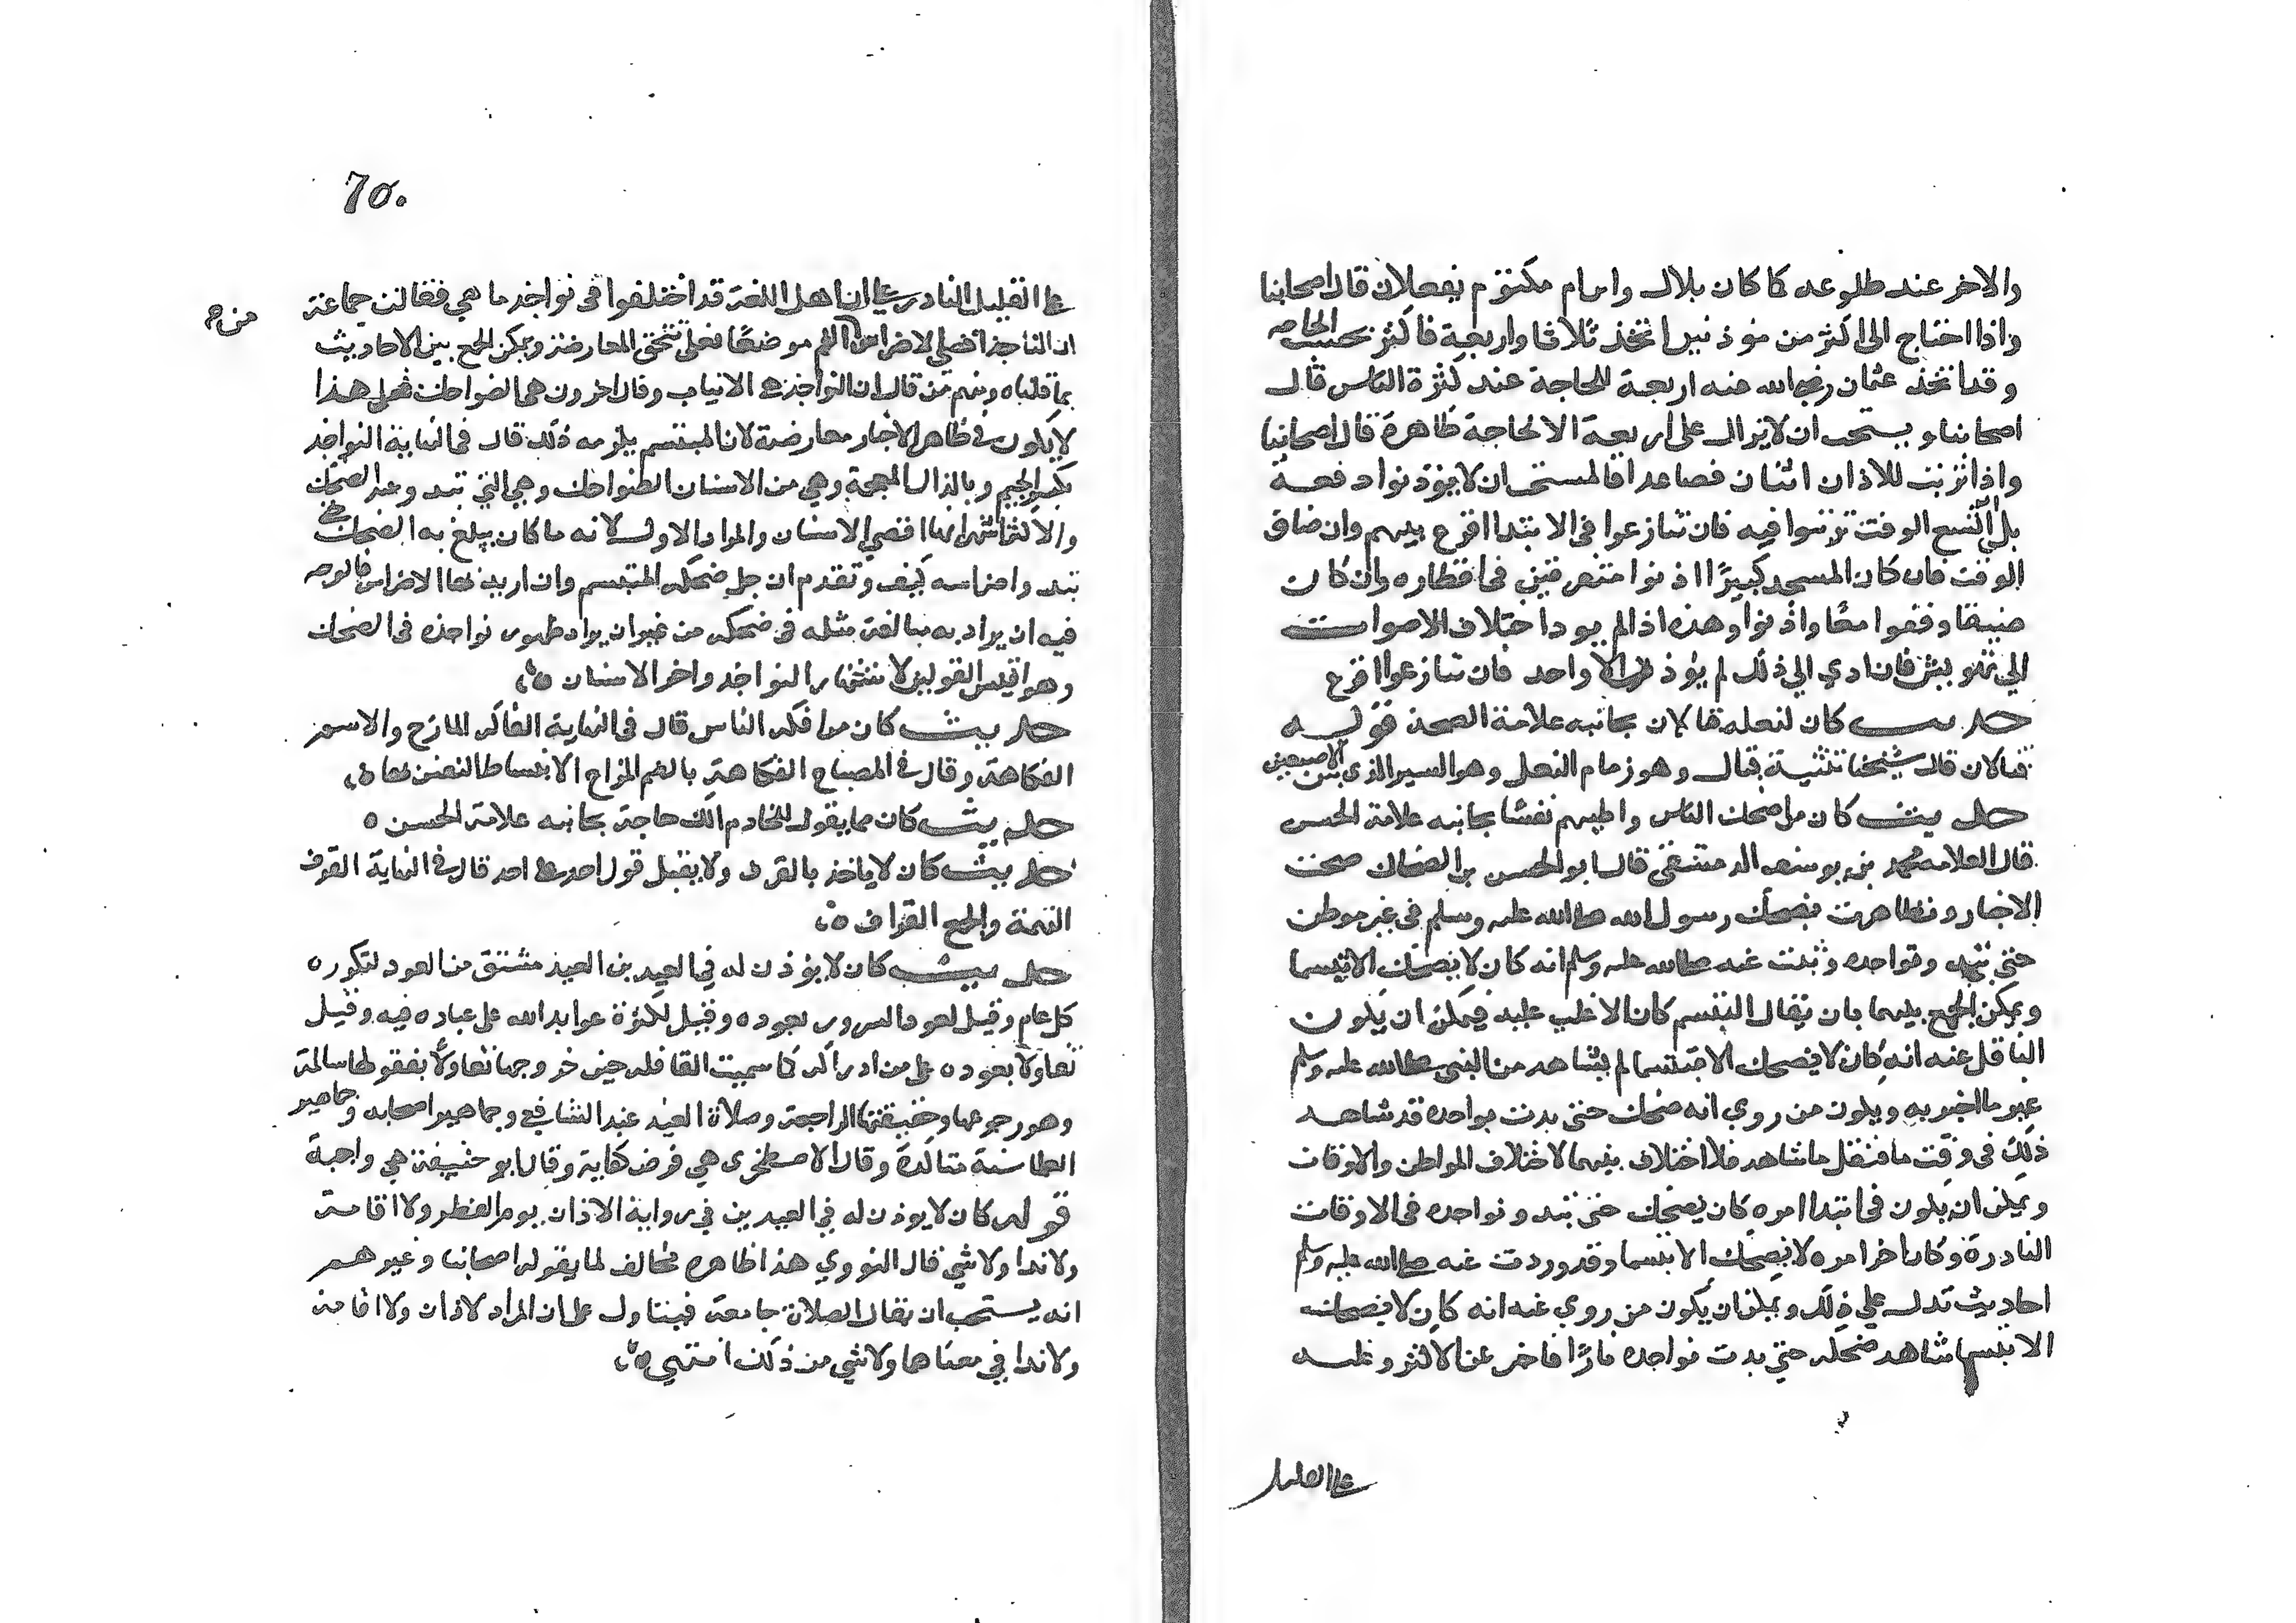 والاخر عند طلوعه كما كان بلال وابن ام مكتوم يفعلان قال اصحابنا
واذا احتاج الى اكثر من مؤذنين اتخذ ثلاثا واربعة فاكثر بحسب الحاجه
وقد اتخذ عثمان رضي الله عنه اربعة للحاجة عند كثرة الناس قال
اصحابنا ويستحب ان لا يزال على اربعة الا لحاجة ظاهرة قال اصحابنا
واذا ترتب للاذان اثنان فصاعدا فالمستحب ان لا يؤذنوا دفعة
بل ان اتسع الوقت ترتبوا فيه فان تنازعوا في الابتدا اقرع بينهم وان ضاق
الوقت فان كان المسجد كبيرًا اذنوا متفرقين في اقطاره وان كان
ضيقا وقفوا معًا واذنوا وهذه اذا لم يود اختلاف الاصوات
الي تهويش فان ادي الي ذلك لم يؤذن الا واحد فان تنازعوا اقرع
حديث كان لنعله قبالان بجانبه علامة الصحة قوله
قبالان قال شيخنا تثنية قبال وهو زمام النعل وهو السير الذي بين الاصبعين
حديث كان من اضحك الناس واطيبهم نفسًا بجانبه علامة الحسن
قال العلامه محمد بن يوسف الدمشقي قال ابو الحسن بن الضحاك صحت
الاخبار وتظاهرت بضحك رسول الله صلى الله عليه وسلم في غير موطن
حتى تبدو نواجده وثبت عنه صلى الله عليه وسلم انه كان لا يضحك الا تبسما
ويمكن الجمع بينهما بان يقال التبسم كان الاغلب عليه فيمكن ان يكون
الناقل عنه انه كان لا يضحك الا تبسما لم يشاهد من النبي صلى الله عليه وسلم
غير ما اخبر به ويكون من روي انه ضحك حتى بدت نواجده قد شاهد
ذلك في وقت ما فنقل ما شاهد فلا اختلاف بينهما لاختلاف المواطن والاوقات
ويمكن ان يكون في ابتدا امره كان يضحك حتى تبدو نواجده في الاوقات
النادرة وكان اخر امره لا يضحك الا تبسما وقد وردت عنه صلى الله عليه وسلم
احاديث تدل على ذلك ويمكن ان يكون من روي عنه انه كان لا يضحك
الا تبسما شاهد ضحكه حتى بدت نواجده نادرًا فاخبر عن الاكثر وغلبه
على القليل
70.
على القليل النادر على ان اهل اللغة قد اختلفوا في نواجد ما هي فقالت جماعة
ان الناجذ اقصى الاضراس من الفم موضعًا فعلى تتحقق المعارضة ويمكن الجمع بين الاحاديث
بما قلناه ومنهم من قال ان النواجذ هي الانياب وقال اخرون هي الضواحك فعلى هذا
لا يكون في ظاهر الاخبار معارضة لان المبتسم يلزمه ذلك قال في النهاية النواجذ
بكسر الجيم وبالذال المعجمة وهي من الاسنان الضواحك وهي التي تبدو عند الضحك
والاكثر الاشهر انها اقصي الاسنان والمراد الاول لانه ما كان يبلغ به الضحك حتى
تبدو اضراسه كيف وتقدم ان جل ضحكه التبسم وان اريد بها الاضراس فالوجه
فيه ان يراد به مبالغة مثله في ضحكه من غير ان يراد ظهور نواجذه في الضحك
وهو اقيس القولين لاشتهار النواجد واخر الاسنان ه
حديث كان من افكه الناس قال في النهاية الفاكه المازح والاسم
الفكاهة وقال في المصباح الفكاهة بالضم المزاح لانبساط النفس بها ه
حديث كان مما يقول للخادم الك حاجة بجانبه علامة الحسن ه
حديث كان لا ياخذ بالقرف ولا يقبل قول احد على احد قال في النهاية القرف
التهمة والجمع القراف ه
حديث كان لا يؤذن له في العيدين العيد مشتق من العود لتكرره
كل عام وقيل لعود السرور بعوده وقيل لكثرة عوايد الله على عباده فيه وقيل
تفاولا بعوده على من ادركه كما سميت القافله حين خروجها تفاولا بقفولها سالمة
وهو رجوعها وحقيقتها الراجعة وصلاة العيد عند الشافعي وجماهير اصحابه وجماهير
العلما سنة متاكدة وقال الاصطخري هي فرض كفاية وقال ابو حنيفة هي واجبة
قوله كان لا يوذن له في العيدين في رواية الاذان يوم الفطر ولا اقامة
ولا ندا ولا شي قال النووي هذا ظاهره مخالف لما يقوله اصحابنا وغيرهم
انه يستحب ان يقال الصلاة جامعة فيتاول على ان المراد لا اذان ولا اقامة
ولا ندا في معناها ولا شي من ذلك انتهي ه